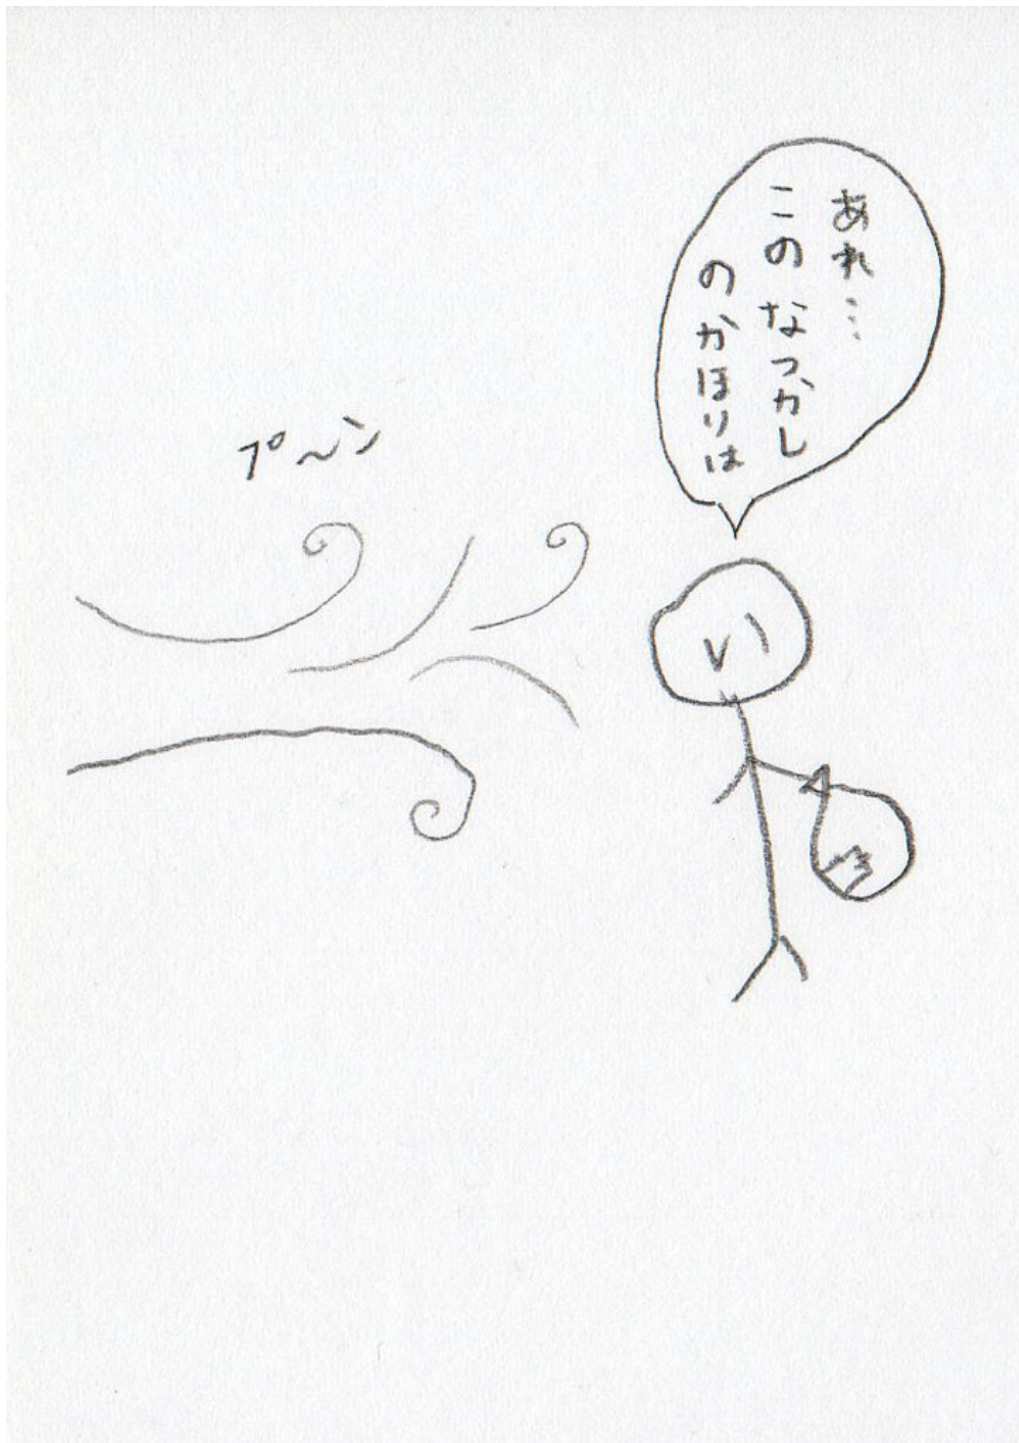 あれ…
このなつかし
のかほりは
プ～ン
い